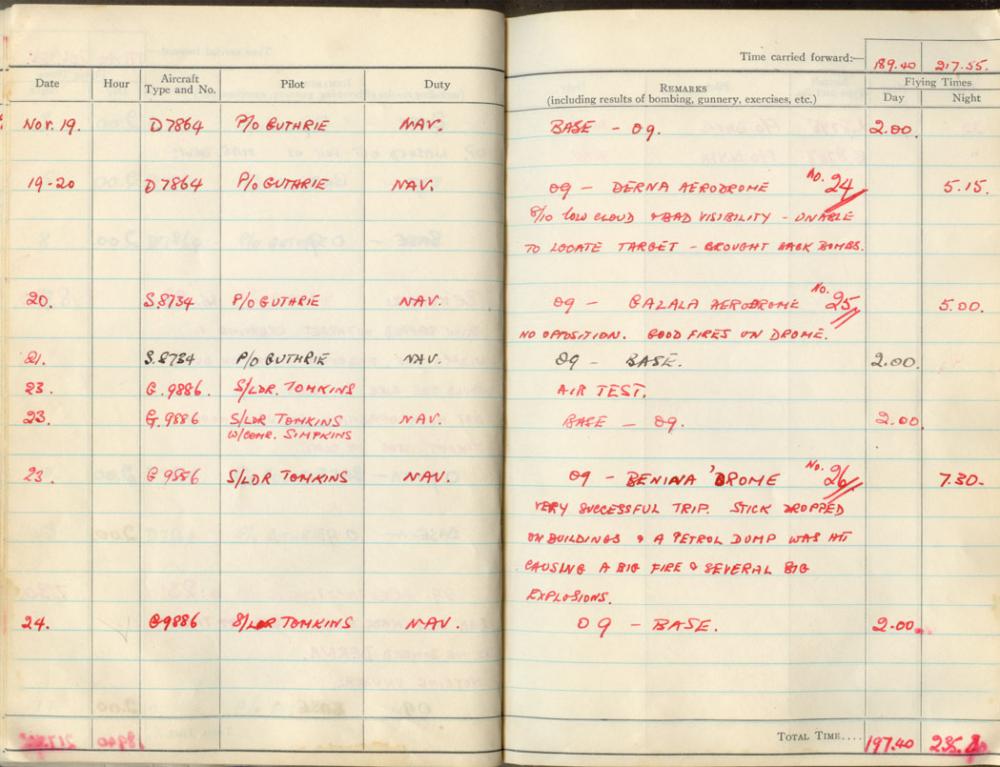 Time carried forward:— 189.40 217.55.
Date Hour Aircraft Type and No. Pilot Duty REMARKS (including results of bombing, gunnery, exercises, etc.) Flying Times Day Night
Nov. 19. D7864 P/O GUTHRIE NAV. BASE - 09. 2.00.
19-20 D7864 P/O GUTHRIE NAV. 09 - DERNA AERODROME No. 24 5.15.
8/10 LOW CLOUD & BAD VISIBILITY - UNABLE
TO LOCATE TARGET - BROUGHT BACK BOMBS.
20. S.8734 P/O GUTHRIE NAV. 09 - GAZALA AERODROME No. 25 5.00.
NO OPPOSITION. GOOD FIRES ON DROME.
21. S.8734 P/O GUTHRIE NAV. 09 - BASE. 2.00.
23. G.9886. S/LDR. TOMKINS AIR TEST.
23. G.9886 S/LDR TOMKINS NAV. BASE - 09. 2.00.
W/COMR. SIMPKINS
23. G9886 S/LDR TOMKINS NAV. 09 - BENINA 'DROME No. 26 7.30.
VERY SUCCESSFUL TRIP. STICK DROPPED
ON BUILDINGS & A PETROL DUMP WAS HIT
CAUSING A BIG FIRE & SEVERAL BIG
EXPLOSIONS.
24. G9886 S/LDR TOMKINS NAV. 09 - BASE. 2.00.
TOTAL TIME.... 197.40